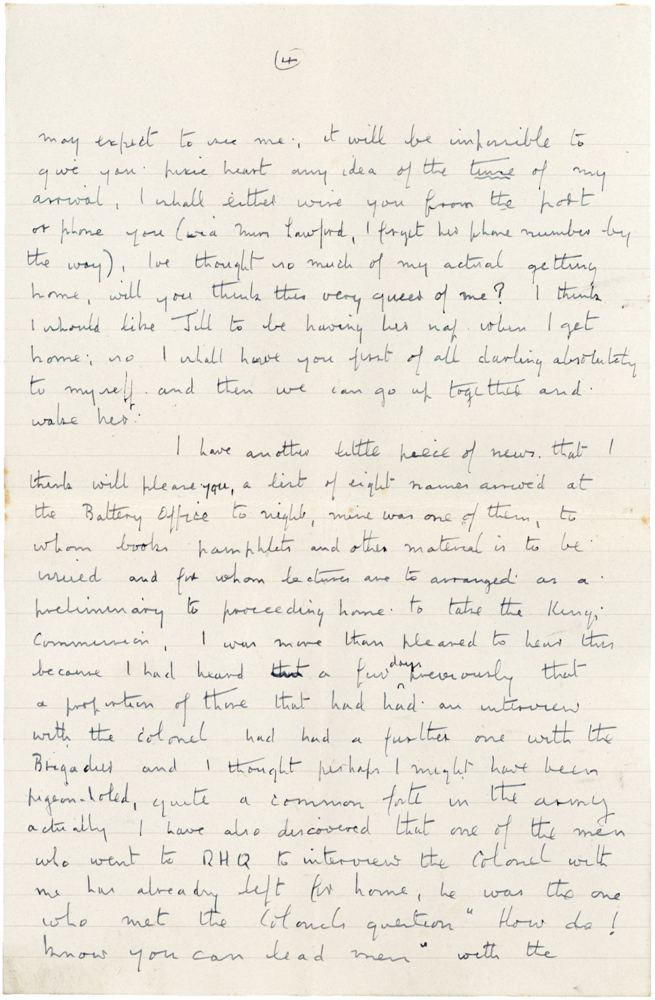 4
may expect to see me; it will be impossible to
give you pixie heart any idea of the time of my
arrival, I shall either wire you from the port
or phone you (via Mrs Lawford, I forget her phone number by
the way), Ive thought so much of my actual getting
home, will you think this very queer of me? I think
I should like Jill to be having her nap when I get
home; so I shall have you first of all darling absolutely
to myself and then we can go up together and
wake her.
I have another little piece of news that I
think will please you, a list of eight names arrived at
the Battery Office to night, mine was one of them, to
whom books pamphlets and other material is to be
issued and for whom lectures are to arranged as a
preliminary to proceeding home to take the Kings
Commission, I was more than pleased to hear this
because I had heard that a few days previously that
a proportion of those that had had an interview
with the Colonel had had a further one with the
Brigadier and I thought perhaps I might have been
pigeon-holed, quite a common fate in the army
actually I have also discovered that one of the men
who went to RHQ to interview the Colonel with
me has already left for home, he was the one
who met the Colonels question "How do I
know you can lead men" with the